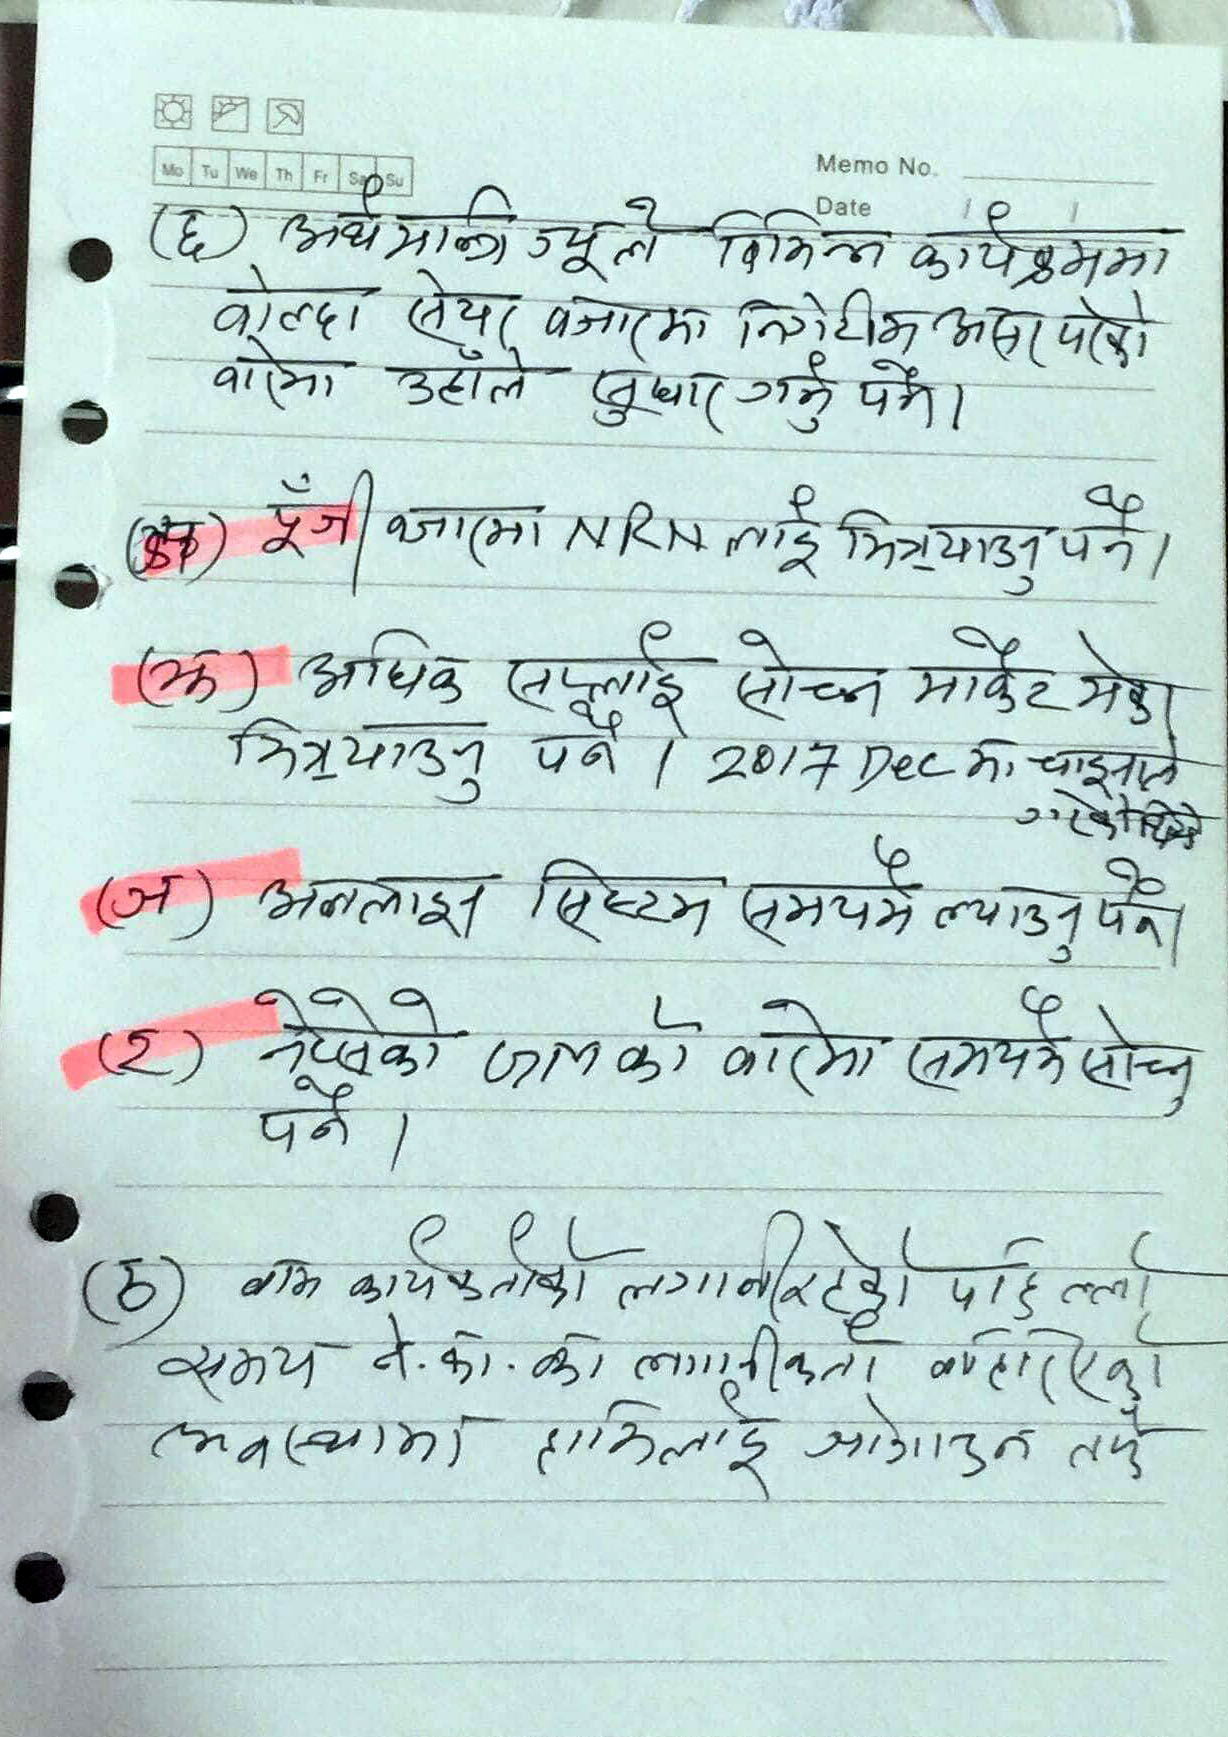 Mo Tu We Th Fr Sa Su
Memo No.
Date / /
(छ) अर्थमन्त्रि ज्यूले बिभिन्न कार्यक्रममा
बोल्दा सेयर बजारमा निगेटीभ असर परेको
बारेमा उहाँले सुधार गर्नु पर्ने।
पूँजी बजारमा NRN लाई भित्र्याउनु पर्ने।
(झ) अधिक सप्लाई सोच्न मार्केट मेकर
भित्र्याउनु पर्ने। 2017 Dec मा चाइनाले
गरेको थियो
(ञ) अनलाइन सिस्टम समयमै ल्याउनु पर्ने।
(ट) नेप्सेको को बारेमा समयमै सोच्नु
पर्ने।
(ठ) बाम कार्यकर्ताको लगानी रहेको पहिल्लो
समय ने.का. का लगानीकर्ता बाहिरिएको
अवस्थामा हामिलाई जोगाउन तर्फ